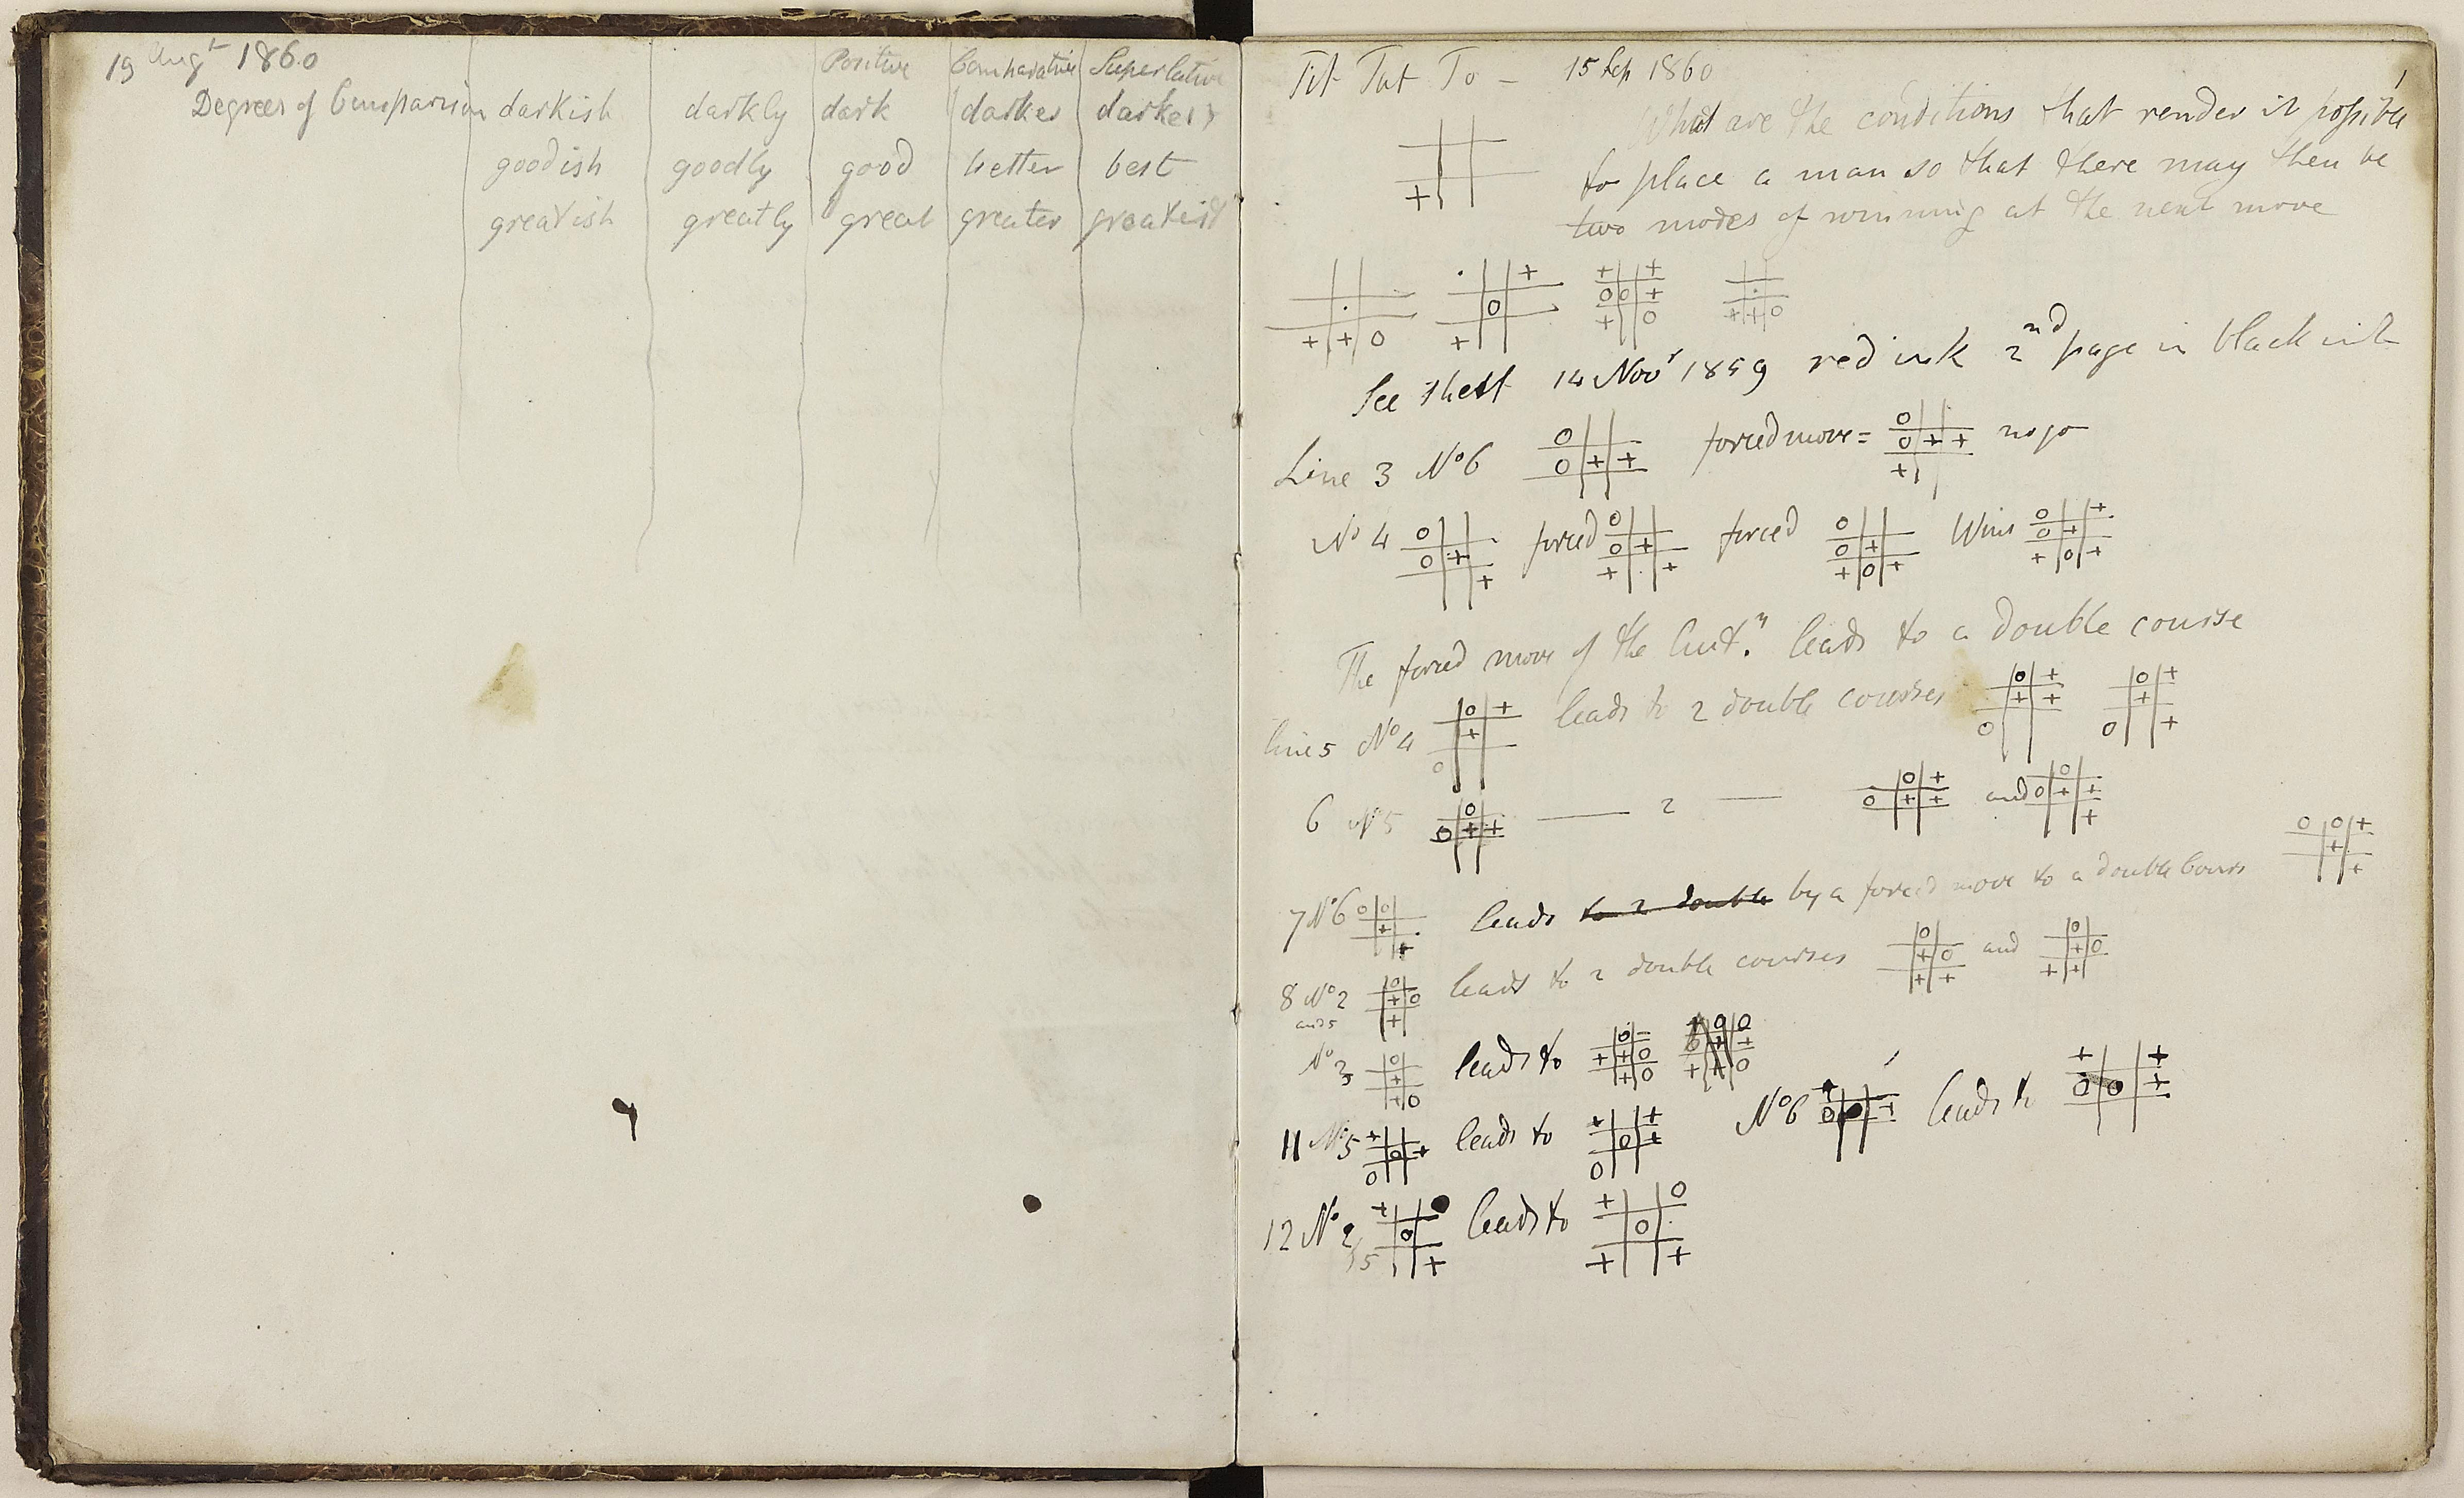 19 Augt 1860
Positive Comparative Superlative
Degrees of Comparison darkish darkly dark darker darkest
goodish goodly good better best
greatish greatly great greater greatest
Tit Tat To – 15 Sep 1860
1
What are the conditions that render it possible
to place a man so that there may then be
two modes of winning at the next move
+
. + + 0
. + 0 +
+ + 0 0 + + 0
. + + 0
See sheet 14 Novr 1859 red ink 2nd page in black ink
Line 3 No 6 0 0 + + forced move = 0 0 + + + no go
No 4 0 0 + + forced 0 0 + + . + forced 0 0 + + 0 + Wins 0 + 0 + + 0 +
The forced move of the leads to a double course
line 5 No 4 0 + + 0 leads to 2 double courses 0 + + + 0 0 + + 0 +
6 No 5 0 0 + + — 2 — 0 + 0 + + and 0 0 + + +
7 No 6 0 0 + + leads to 2 double by a forced move to a double Cours 0 0 + + +
8 No 2 and 5 0 + 0 + leads to 2 double courses 0 + 0 + + and 0 + 0 + +
No 3 0 + + 0 leads to 0 + + 0 + 0
11 No 5 + 0 + 0 leads to + + 0 + 0 No 6 + 0 + leads to + + 0 0 +
12 No 2/5 + 0 + leads to + 0 0 . + +